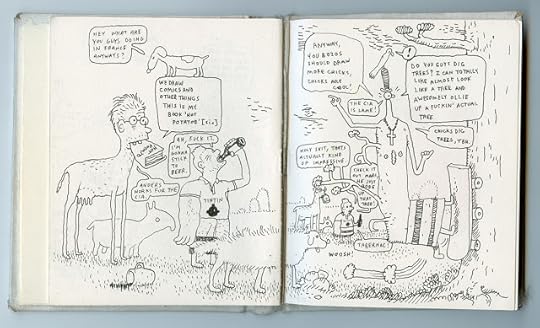 HEY WHAT ARE
YOU GUYS DOING
IN FRANCE
ANYWAYS?
WE DRAW
COMICS AND
OTHER THINGS
THIS IS MY
BOOK "HOT
POTATOE"
AH, FUCK IT.
I'M
GONNA
STICK
TO
BEER.
ANDERS
WORKS FOR THE
CIA.
TINTIN
ANYWAY,
YOU BOZOS
SHOULD DRAW
MORE CHICKS,
CHICKS ARE
COOL!
THE CIA
IS LAME!
DO YOU GUYS DIG
TREES? I CAN TOTALLY
LIKE ALMOST LOOK
LIKE A TREE AND
AWESOMELY OLLIE
UP A FUCKIN' ACTUAL
TREE
CHICKS DIG
TREES, YEH.
HOLY SHIT, THATS
ACTUALLY KIND
OF IMPRESSIVE
CHECK IT
OUT MARC,
HE JUST
THAT
TREE!
TABERNAC
WOOSH!